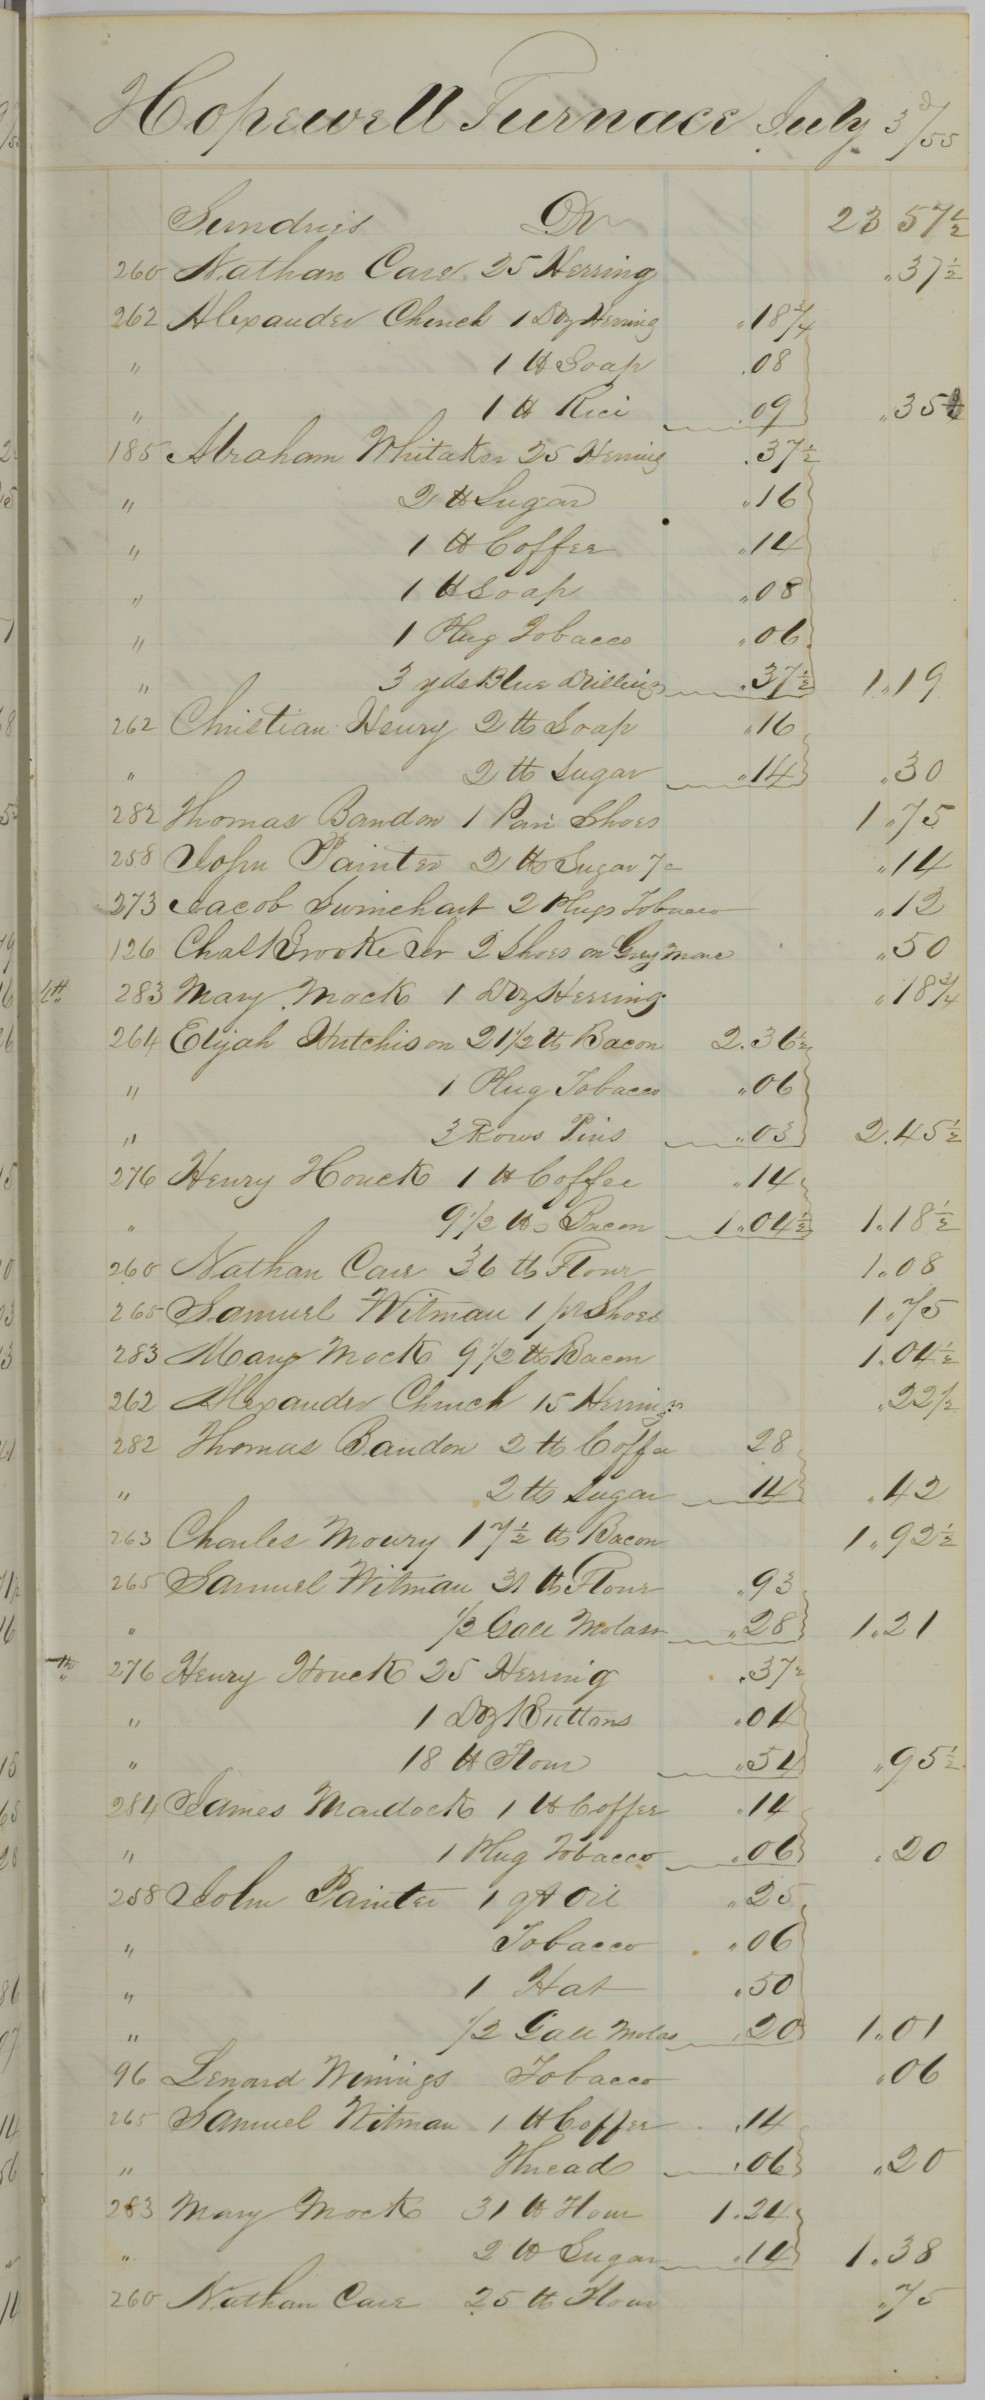 Hopewell Furnace July 3d/55
Sundries Dr 23 57 1/2
260 Nathan Care 25 Herring .37 1/2
262 Alexander Church 1 Doz Herring .18 3/4
" 1 lb Soap .08
" 1 lb Rice .09 .35
185 Abraham Whitaker 25 Herring .37 1/2
" 2 lb Sugar .16
" 1 lb Coffee .14
" 1 lb Soap .08
" 1 Plug Tobacco .06
" 3 yds Blue Drilling .37 1/2 1.19
262 Christian Henry 2 lb Soap .16
" 2 lb Sugar .14 .30
282 Thomas Bandon 1 Pair Shoes 1.75
258 John Painter 2 lbs Sugar 7c .14
273 Jacob Swinehart 2 Plugs Tobacco .12
126 Chas Brooke Sr 2 Shoes on Grey Mare .50
4th 283 Mary Mock 1 Doz Herring .18 3/4
264 Elijah Hutchison 21 1/2 lb Bacon 2.36 1/2
" 1 Plug Tobacco .06
" 3 Rows Pins .03 2.45 1/2
276 Henry Houck 1 lb Coffee .14
" 9 1/2 lbs Bacon 1.04 1/2 1.18 1/2
260 Nathan Care 36 lb Flour 1.08
265 Samuel Witman 1 pr Shoes 1.75
283 Mary Mock 9 1/2 lbs Bacon 1.04 1/2
262 Alexander Church 15 Herrings .22 1/2
282 Thomas Bandon 2 lb Coffee 28
" 2 lb Sugar 14 .42
263 Charles Moury 17 1/2 lb Bacon 1.92 1/2
265 Samuel Witman 31 lb Flour .93
" 1/2 Gall Molass .28 1.21
276 Henry Houck 25 Herring .37 1/2
" 1 Doz Buttons .04
" 18 lb Flour .54 .95 1/2
284 James Mardock 1 lb Coffee .14
" 1 Plug Tobacco .06 .20
258 John Painter 1 qt Oil .25
" Tobacco .06
" 1 Hat .50
" 1/2 Gall Molas .20 1.01
96 Lenard Winings Tobacco .06
265 Samuel Witman 1 lb Coffee .14
" Thread .06 .20
283 Mary Mock 31 lb Flour 1.24
" 2 lb Sugar .14 1.38
260 Nathan Care 25 lb Flour .75